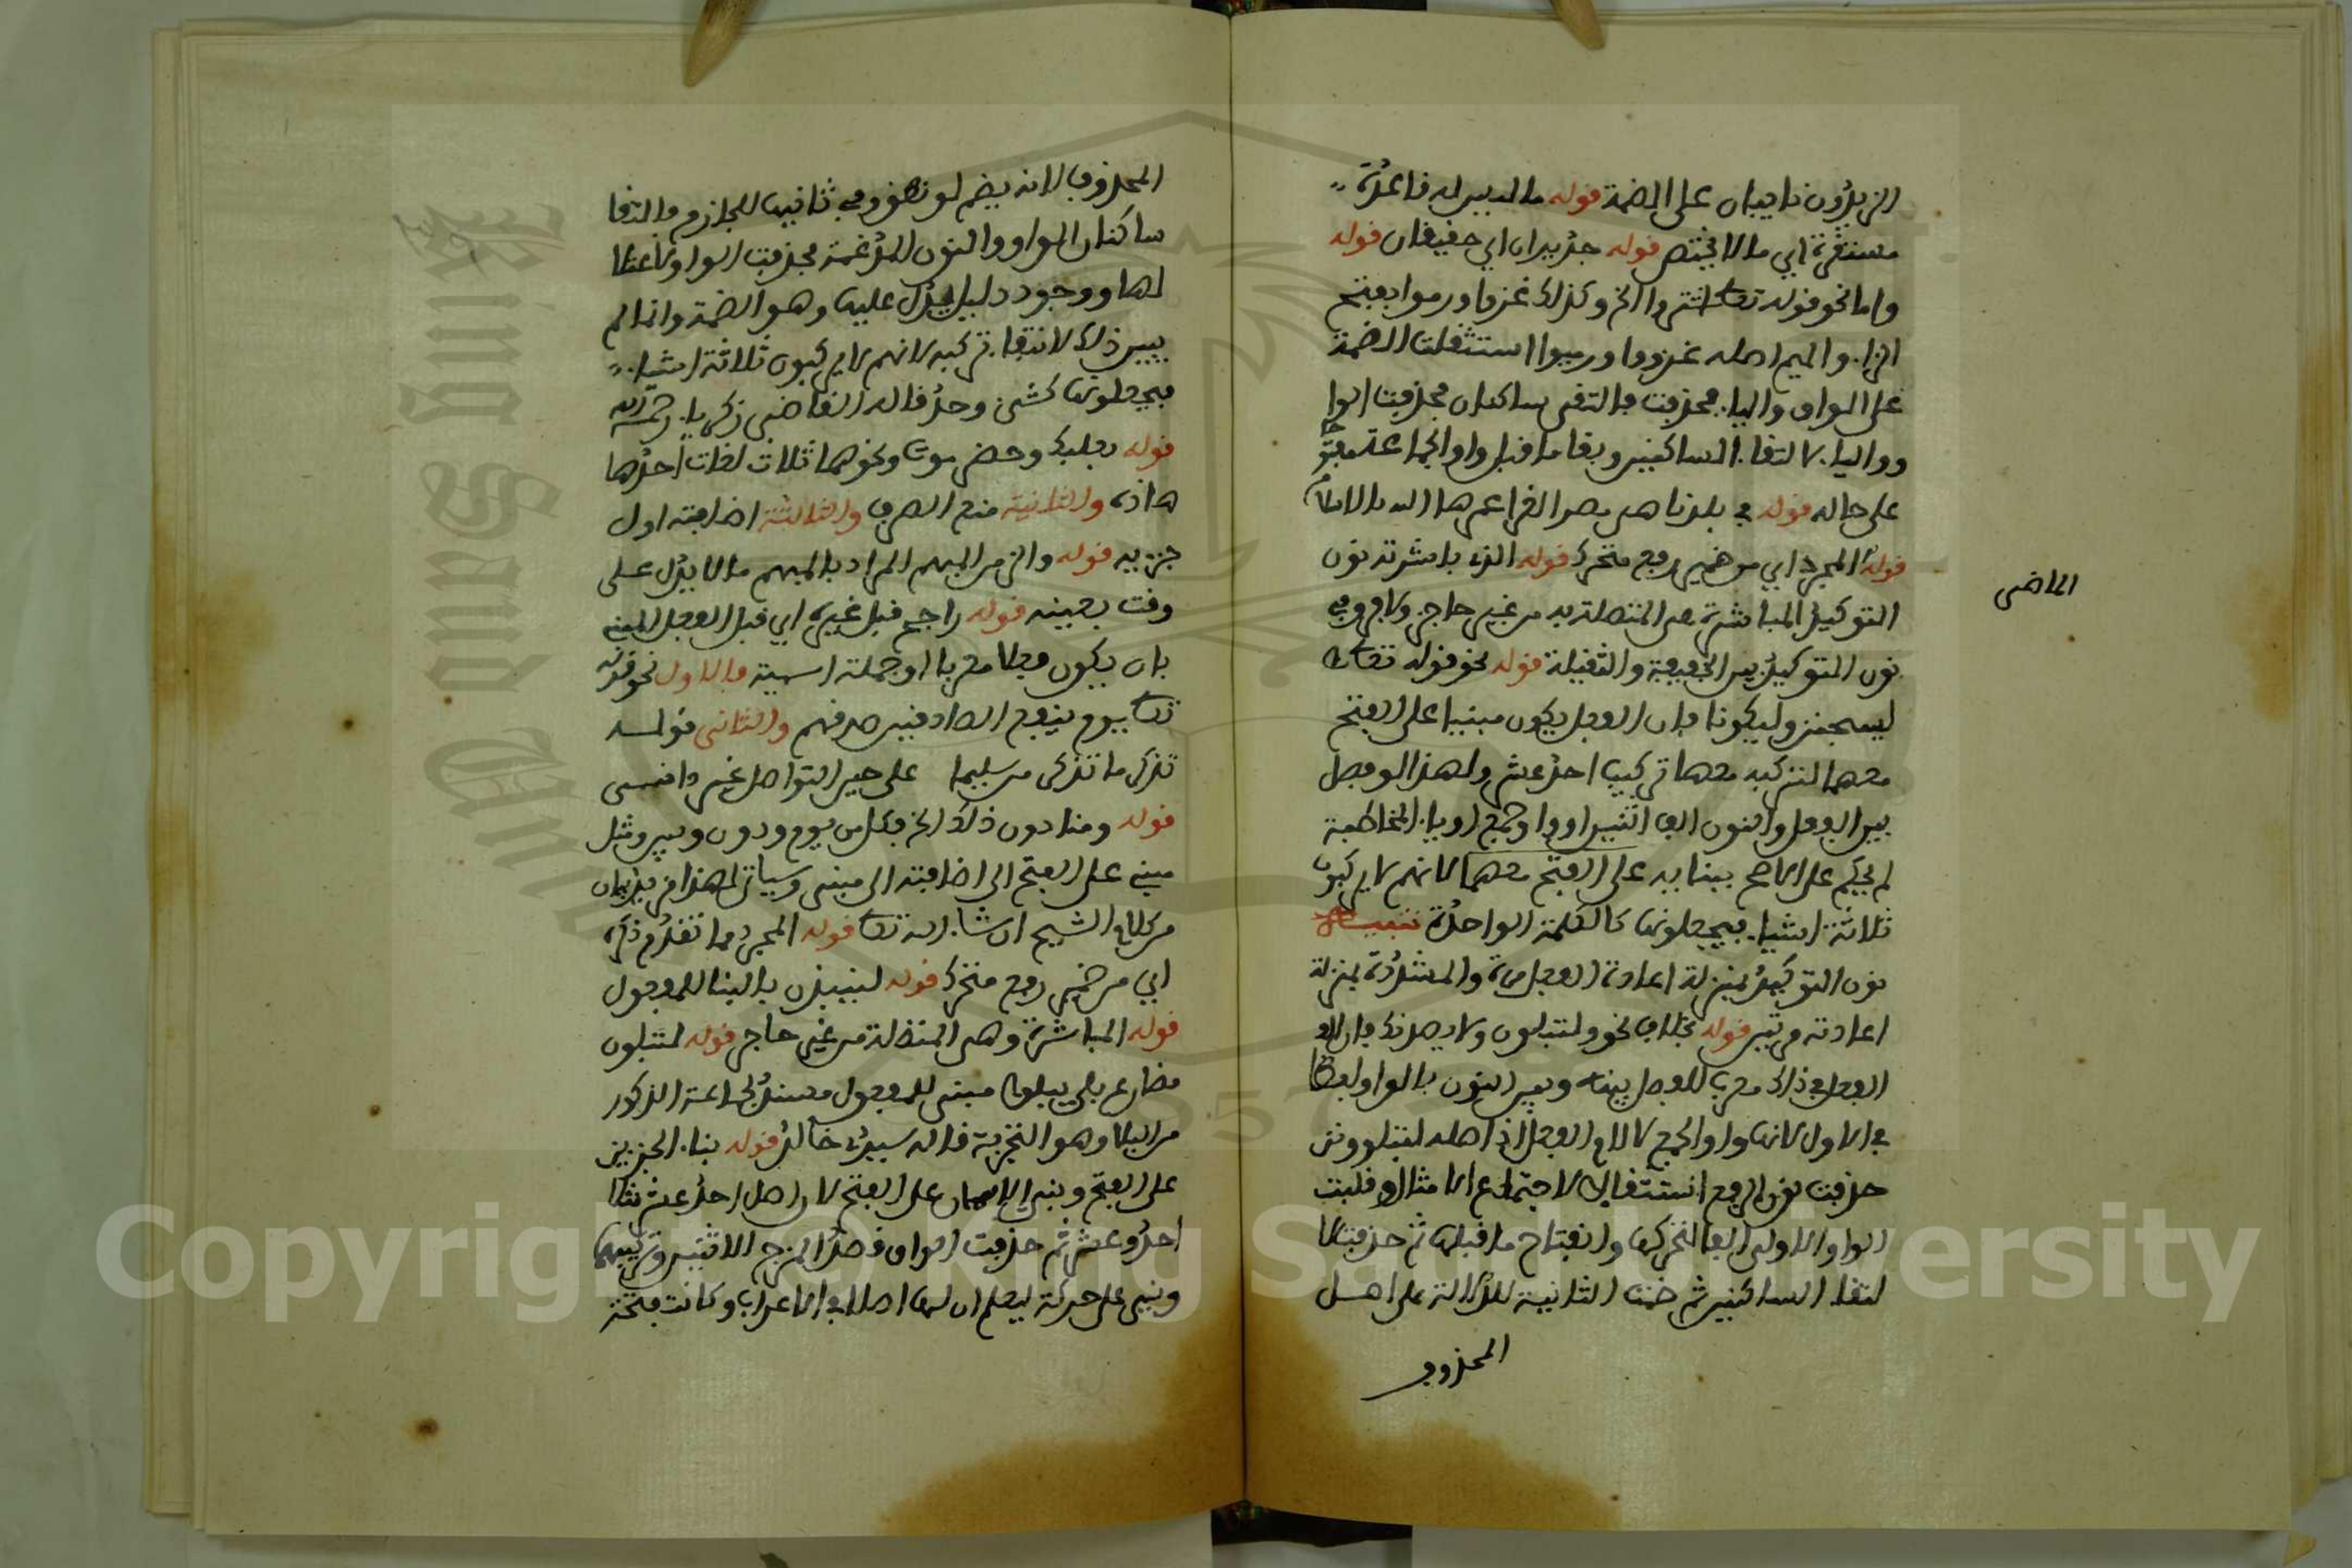 الزيدون نايبان على الضمة قوله ما ليس له قاعدة
مستقرة اي ما لا يختص قوله جديران اي حقيقان قوله
واما نحو قوله تعالى اشتروا الخ وكذلك غزوا ورموا بفتح
الزاء والميم اصله غزووا ورميوا استثقلت الضمة
على الواو والياء فحذفت فالتقى ساكنان فحذفت الوا
وواليا لالتقاء الساكنين وبقا ما قبل واو الجماعة مفتوحا
على حاله قوله في بلدنا هي مصر الغرا عمرها الله بالاسلام
قوله المجرد اي من ضمير رفع متحرك قوله الذي باشرته نون
الماضى
التوكيد المباشرة هي المتصلة به من غير حاجز ولا فرق في
نون التوكيد بين الخفيفة والثقيلة قوله نحو قوله تعالى
ليسجنن وليكونا فان الفعل يكون مبنيا على الفتح
معهما لتركبه معها تركيب احد عشر ولهذا لو فصل
بين الفعل والنون الف اثنين او واو جمع او ياء المخاطبة
لم يحكم على الاصح ببنايه على الفتح معهما لانهم لا يركبون
ثلاثة اشياء فيجعلونها كالكلمة الواحدة تنبيه
نون التوكيد بمنزلة اعادة الفعل مرة والمشددة بمنزلة
اعادته مرتين قوله بخلاف نحو ولتبلون ولا يصدنك فان
الفعل في ذلك معرب للفصل بينه وبين النون بالواو لفظا
في الاول لانها واو الجمع لا لام الفعل اذ اصله لتبلوونن
حذفت نون الرفع استثقالا لاجتماع الامثال وقلبت
الواو الاولى الفا لتحركها وانفتاح ما قبلها ثم حذفت لا
لتقاء الساكنين ثم ضمت الثانية للدلالة على اصل
المحذوف
المحذوف لانه يضم لو نطق وفي ثانيها للجازم فالتقا
ساكنان الواو والنون المدغمة فحذفت الواو لاعتلا
لها ووجود دليل يدل عليها وهو الضمة وانما لم
يبين ذلك لانتقاء تركبه لانهم لا يركبون ثلاثة اشياء
فيجعلونها كشئ وحد قاله القاضى زكريا رحمه الله
قوله بعلبك وحضرموت ونحوهما ثلاث لغات احدها
هاذه والثانية منع الصرف والثالثة اضافته اول
جزييه قوله والزمن المبهم المراد بالمبهم ما لا يدل على
وقت بعينه قوله راجح قبل غيره اي قبل الفعل المبني
بان يكون فعلا معربا او جملة اسمية فالاول نحو قوله
تعالى يوم ينفع الصادقين صدقهم والثانى قولـه
تذكر ما تذكر من سليما على حين التواصل غير دانـى
قوله ومنا دون ذلك الخ فكل من يوم ودون وبين ومثل
مبني على الفتح الى اضافته الى مبنى وسياتى لهذا مزيد بيان
من كلام الشيخ ان شاء الله تعالى قوله المجرد مما تقدم ذكره
اي من ضمير رفع متحرك قوله لينبذن بالبنا للمفعول
قوله المباشرة وهى المتصلة من غير حاجز قوله لتبلون
مضارع بلى يبلوا مبنى للمفعول مسند لجماعة الذكور
من البلا وهو التجربة قاله سيدي خالد قوله بناء الجزيين
على الفتح وبني الاسمان على الفتح لان اصل احد عشر مثلا
احد وعشر ثم حذفت الواو قصد المزج الاثنين وتركيبهما
وبنى على حركة ليعلم ان لها اصلا في الاعراب وكانت فتحة